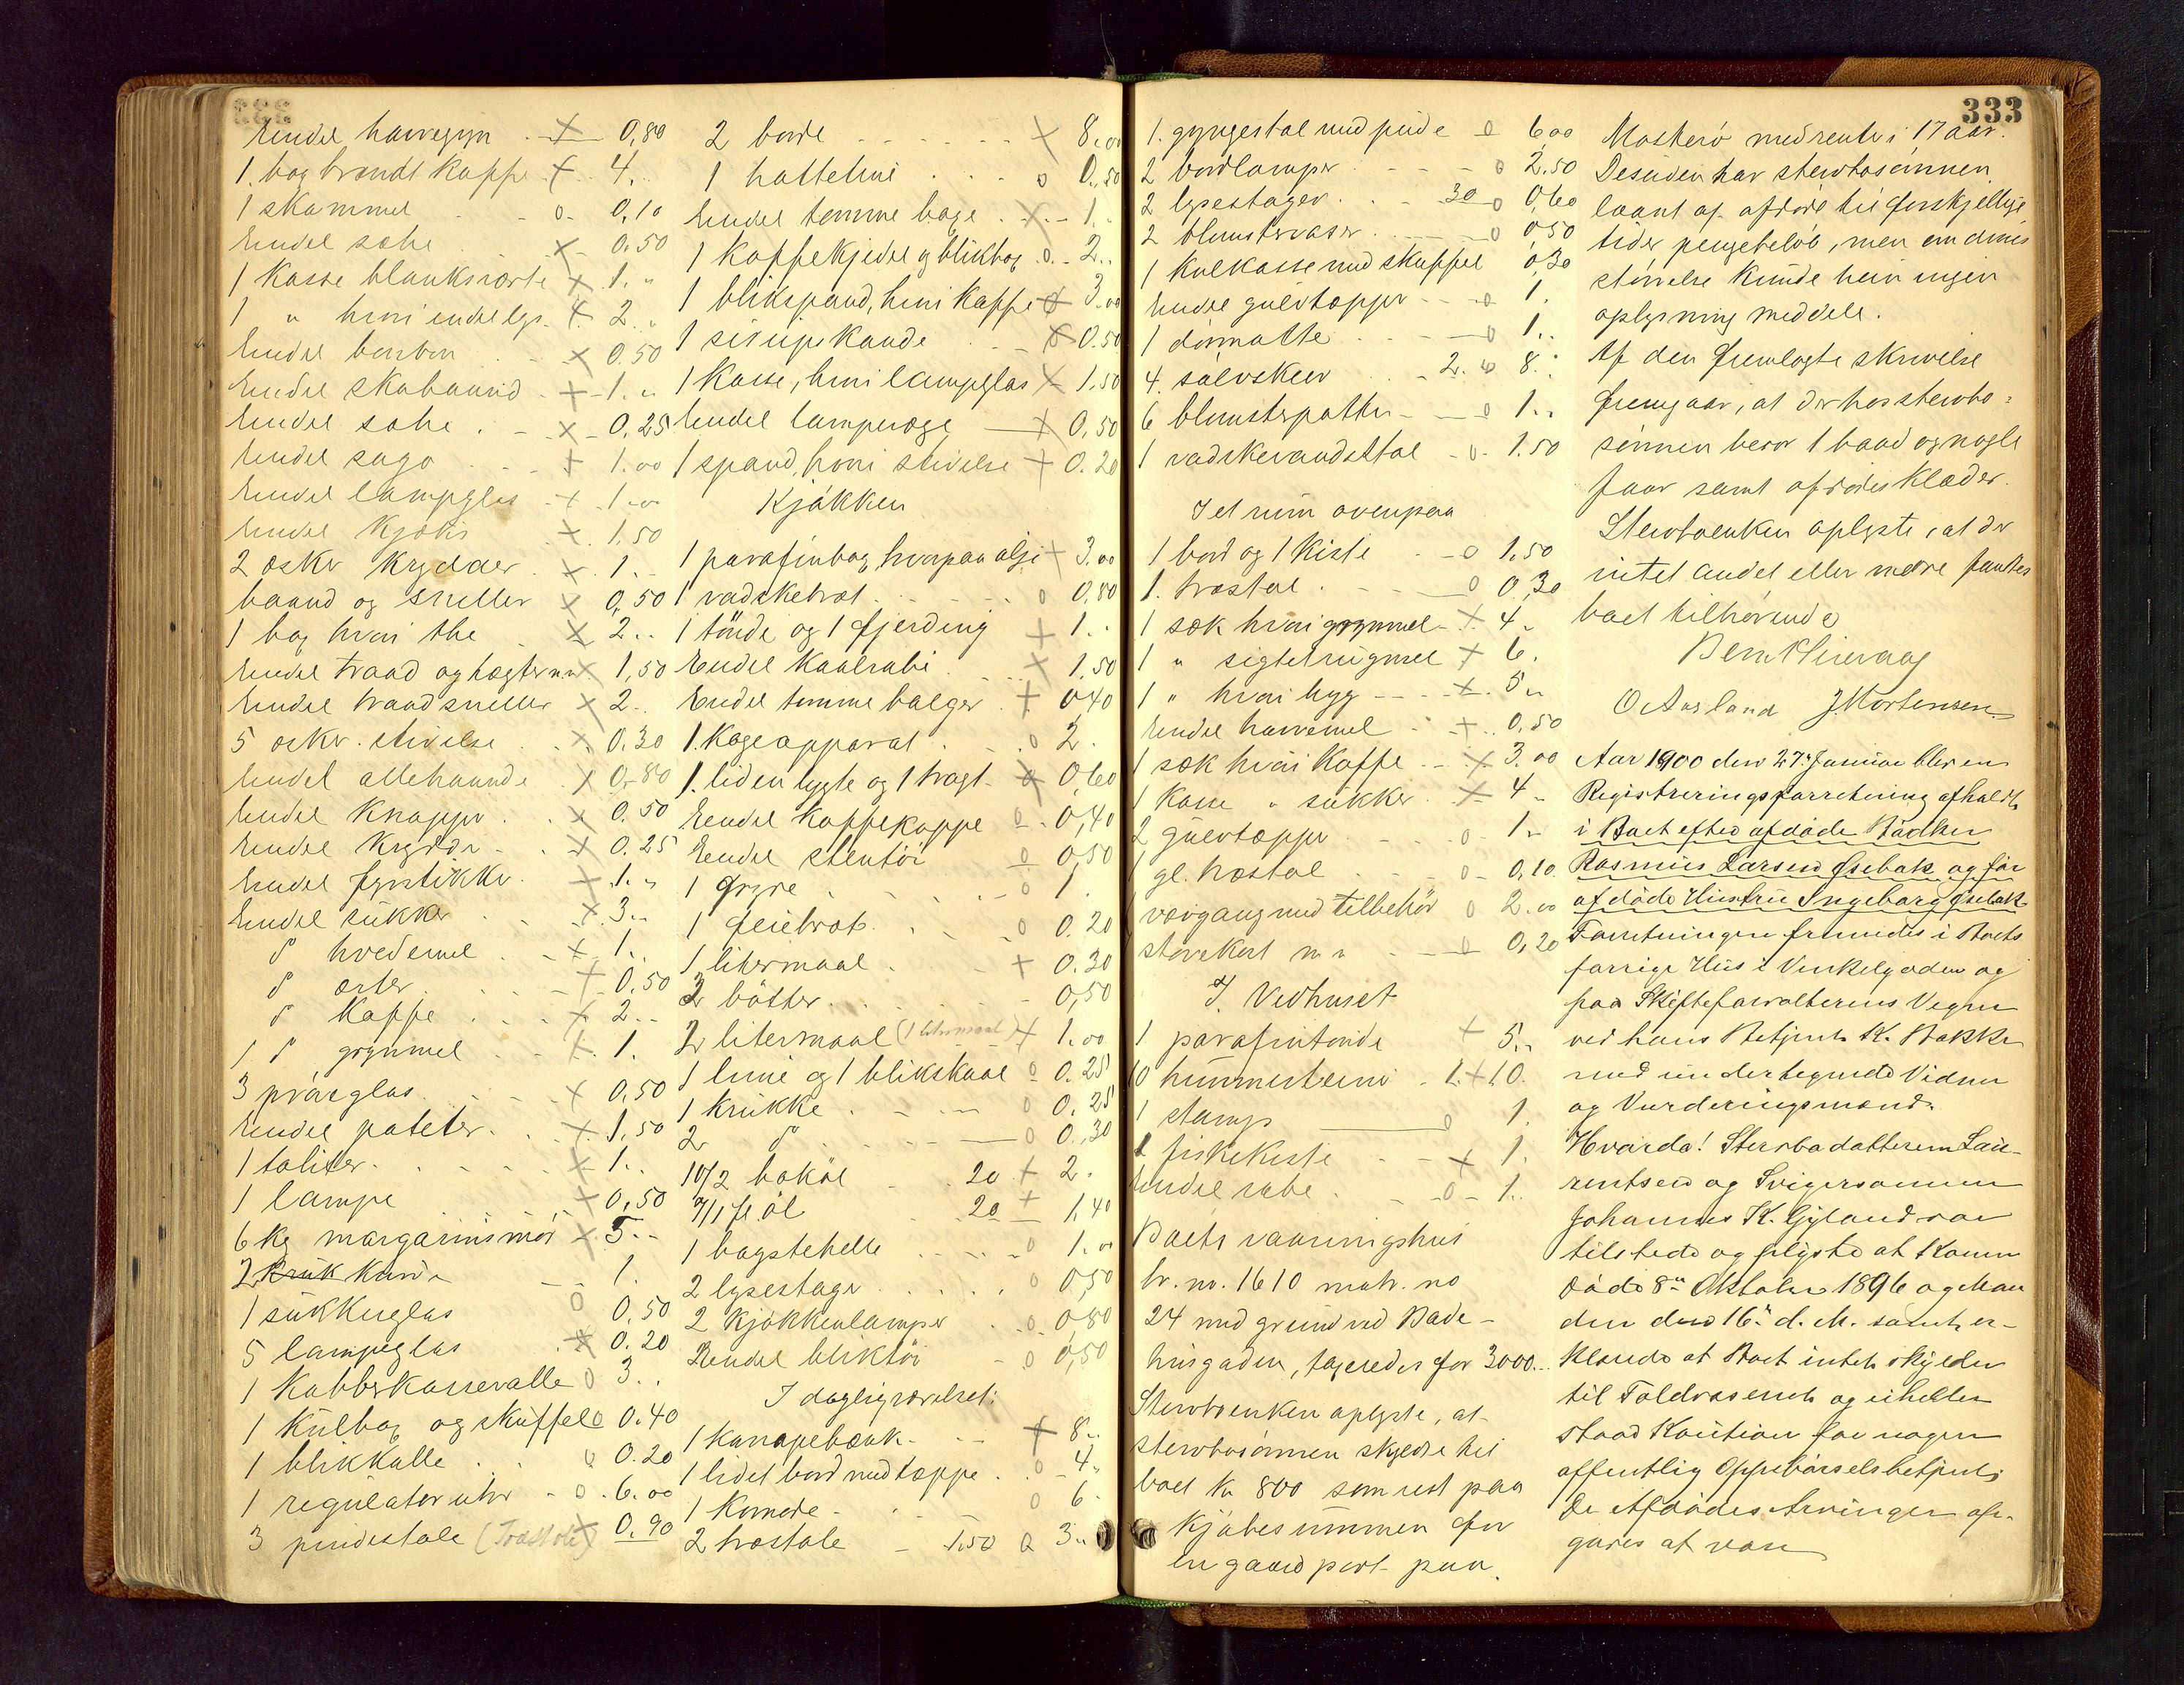 333
Endel havregryn x 0,80
1. bag brændt kaffe x 4.
1 skammel o 0,10
Endel sæbe x 0,50
1 Kasse blanksværte x 1.
1 " hvori endel lys x 2.
Endel bonbon x 0.50
Endel skobaand x 1.
Endel sæbe x 0,25
Endel sago x 1.00
Endel lampeglas x 1.00
Endel Kjæks x 1.50
2 æsker Krydder x 1.
baand og sneller x 0,50
1 bag hvori the x 2.
Endel traad og hægter x 1,50
Endel traadsneller x 2.
5 æsker stivelse x 0.30
Endel allehaande x 0,80
Endel Knapper x 0.50
Endel Krydder x 0.25
Endel fyrstikker x 1.
Endel sukker x 3.
d hvedemel x 1.
d erter x 0.50
d Kaffe x 2.
1 d grynmel x 1.
3 prøveglas x 0,50
Endel pateter x 1,50
1 lampe x 0,50
6 kg margarinsmør x 5.
1 sukkerglas o 0.50
5 lampeglas x 0.20
1 Kobberkasserolle o 3.
1 Kulbox og skuffel o 0.40
1 blikkalle o 0.20
1 regulator uhr o 6.00
3 pindestole (Træstole) 0.90
2 borde x 8.00
1 hattetine o 0.50
Endel tomme bage x 1.
1 Kaffekjedel og blikbox o 2.
1 blikspand, hvori Kaffe 3.00
1 sirupskande 0.50
1 Kasse, hvori lampeglas x 1.50
Endel lampevæge x 0,50
1 spand, hvori stivelse x 0.20
Kjøkken
1 parafinbox, hvorpaa olje x 3.00
1 vadskebræt o 0,80
1 tønde og 1 fjerding x 1.
Endel Kaalrabi x 1,50
Endel tomme balger x 0,40
1. Kogeapparat o 2.
1. liden lygte og 1 tragt 0,60
Endel Kaffekoppe o 0,40
Endel stentøi o 0,50
1 gryde o 1.
1 feiebræt o 0.20
1 litermaal x 0.30
2 bøtter 0,50
2 litermaal (1 litermaal) x 1.00
1 line og 1 blikskaal o 0.25
1 Krukke o 0.25
2 d o 0.30
10/2 bokøl 20 x 2.
7/1 fl. øl 20 x 1,40
1 bagstehelle o 1.00
2 lysestager o 0,50
2 Kjøkkenlamper o 0,80
Endel bliktøi o 0,50
I dagligværelset:
1 kanapebænk x 8.
1 lidet bord med tæppe o 4.
1 Komode o 6.
2 træstole 1.50 o 3.
1. gyngestol med pude o 6,00
2 bordlamper o 2.50
2 lysestager 30 o 0,60
2 blomstervaser o 0,50
1 Kulkasse med skuffel 0,30
Endel gulvtæpper o 1.
1 dørmatte o 1.
4. sølvskeer 2. 8.
6 blomsterpotter o 1.
1 vadskevandsstol o 1.50
I et rum ovenpaa
1 bord og 1 Kiste o 1,50
1. træstol o 0,30
1 sæk hvori grynmel x 4.
1 " sigtetrugmel x 6.
1 " hvori byg x 5.
Endel havremel x 0,50
1 sæk hvori Kaffe x 3.00
1 Kasse " sukker x 4
2 gulvtæpper o 1.
1 gl. træstol o 0,10
1 vævgang med tilbehør o 2.00
o 0,20
I. Vedhuset
1 parafintønde x 5.
10 hummerteiner 1. x 10.
1 stamp o 1.
1 fiskekiste x 1.
Endel o 1.
Boets vaaningshus
br. no. 1610 matr. no
24 med grund ved Bade-
husgaden, taxeredes for 3000.
Stervboenken oplyste, at
stervbosønnen skyldte til
boet Kr 800 som rest paa
Kjøbesummen for
en gaard part paa
Mosterø med rente i 17 aar.
Desuden har stervbosønnen
laant af afdøde til forskjellige
tider pengebeløb, men om dennes
størrelse kunde hun ingen
oplysning meddele.
Af den fremlagte skrivelse
fremgaar, at der hos stervbo-
sønnen beror 1 baad og nogle
faar samt afdødes Klæder.
Stervboenken oplyste, at der
intet andet eller mere fandtes
boet tilhørende
O Aasland J. Mortensen
Aar 1900 den 27. Januar blev en
Registreringsforretning afholdt
i Boet efter afdøde Bødker
Rasmus Larsen Isebak og før
afdøde Hustru Ingeborg Isebak
Forretningen fremmedes i Boets
forrige Hus i Vinkelgaden og
paa Skifteforvalterens Vegne
ved hans Betjent K. Bakke
med undertegnede Vidner
og Vurderingsmænd.
Hvorda! Stervbodatteren Lau-
rentsen og Svigersønnen
Johannes K. Gyland var
tilstede og oplyste at Konen
døde 8de Oktober 1896 og Man
den den 16de d. M. samt er-
klærede at Boet intet skylder
til Toldvæsenet og eiheller
stood Kaution for nogen
offentlig Oppebørselsbetjent.
De Afdødes Arvinger op-
gaves at være